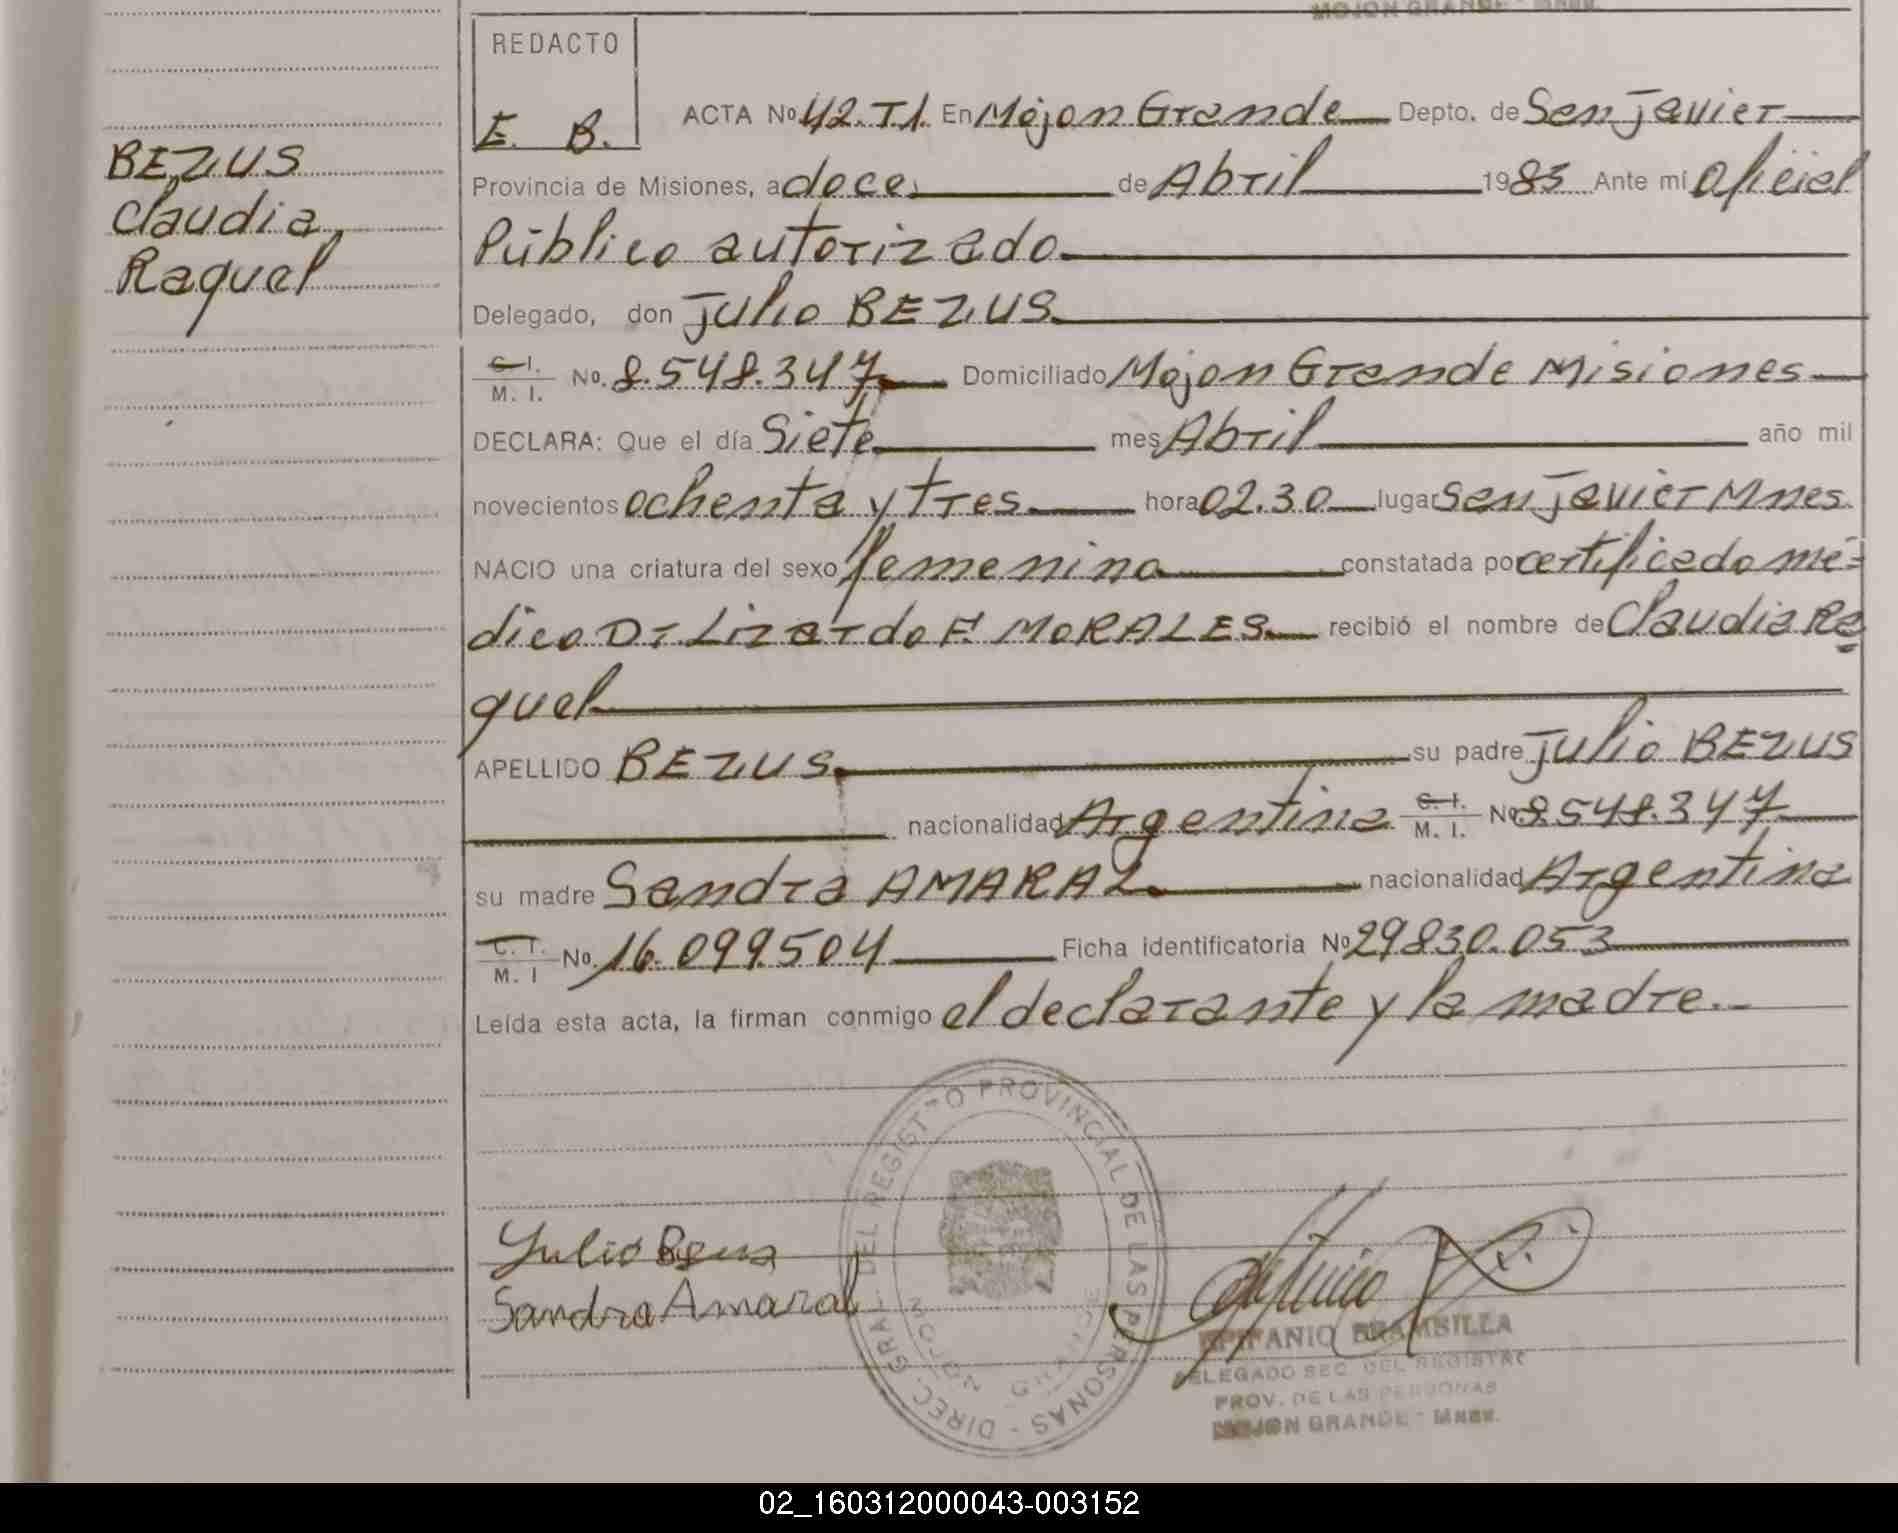 MOJON GRANDE - Mnes.
REDACTO
E. B.
ACTA No 42.T1. En Mojon Grande Depto. de San Javier
BEZUS
Claudia
Raquel
Provincia de Misiones, a doce de Abril 1983 Ante mí Oficial
Público autorizado
Delegado, don Julio BEZUS
C. I.
M. I.
No. 8.548.347 Domiciliado Mojon Grande Misiones
DECLARA: Que el día Siete mes Abril año mil
novecientos ochenta y tres hora 02.30 lugar San Javier Mnes.
NACIO una criatura del sexo femenino constatada po certificado mé=
dico Dr. Lizardo F. MORALES recibió el nombre de Claudia Ra
quel
APELLIDO BEZUS su padre Julio BEZUS
nacionalidad Argentina C. I. M. I. No 8.548.347
su madre Sandra AMARAL nacionalidad Argentina
C. I.
M. I
No. 16.099.504 Ficha identificatoria No 29830.053
Leída esta acta, la firman conmigo el declarante y la madre.
DIREC. GRAL. DEL REGISTRO PROVINCIAL DE LAS PERSONAS -
MOJON GRANDE
Yulio Bezus
Sandra Amaral
EPIFANIO BRAMBILLA
DELEGADO SEC. DEL REGISTRO
PROV. DE LAS PERSONAS
MOJON GRANDE - Mnes.
02_160312000043-003152